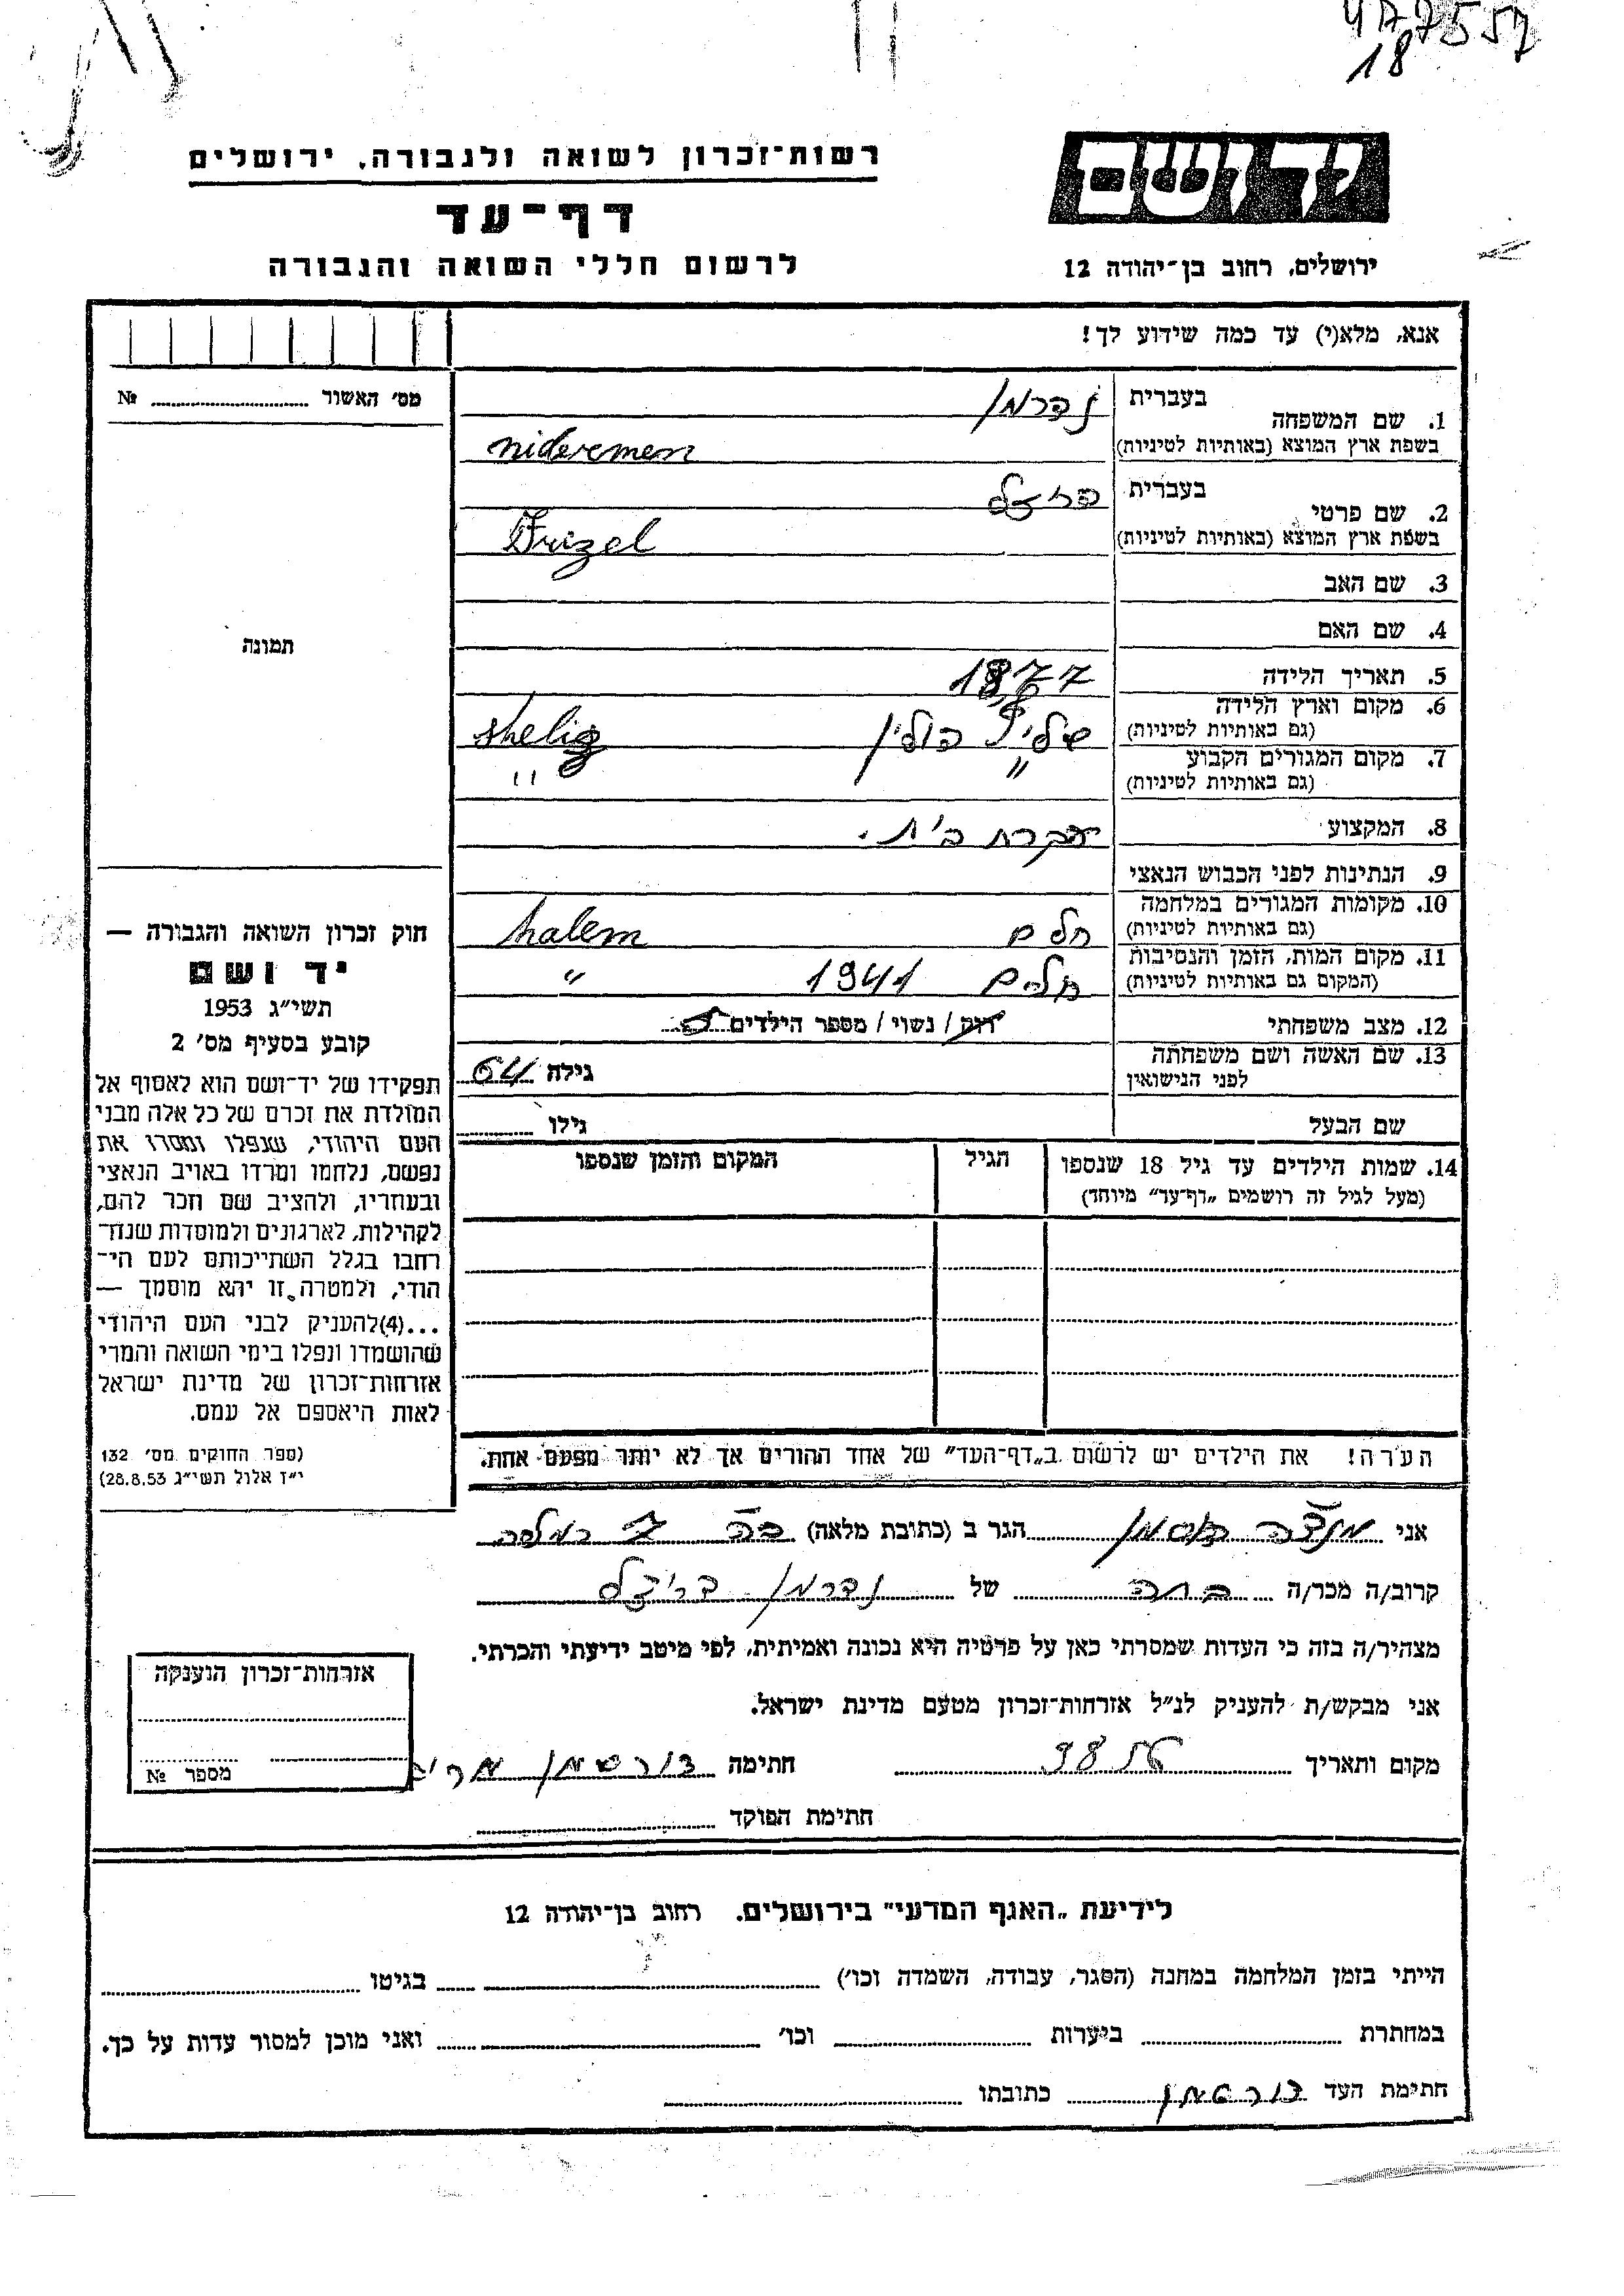 477557
18
רשות־זכרון לשואה ולגבורה, ירושלים
דף־עד
לרשום חללי השואה והגבורה
יד ושם
ירושלים, רחוב בן־יהודה 12
אנא, מלא(י) עד כמה שידוע לך!
מס' האשור № 
1. שם המשפחה בעברית נדרמן
בשפת ארץ המוצא (באותיות לטיניות) nideremen
2. שם פרטי בעברית
בשפת ארץ המוצא (באותיות לטיניות) Frizel
3. שם האב
4. שם האם
5. תאריך הלידה 1877
6. מקום וארץ הלידה (גם באותיות לטיניות) פולין
7. מקום המגורים הקבוע (גם באותיות לטיניות) " "
8. המקצוע עקרת בית.
9. הנתינות לפני הכבוש הנאצי
10. מקומות המגורים במלחמה (גם באותיות לטיניות) חלם halem
11. מקום המות, הזמן והנסיבות (המקום גם באותיות לטיניות) חלם 1941 "
12. מצב משפחתי רוק / נשוי / מספר הילדים 5
13. שם האשה ושם משפחתה לפני הנישואין גילה 64
שם הבעל גילו
14. שמות הילדים עד גיל 18 שנספו
(מעל לגיל זה רושמים „דף־עד" מיוחד)
הגיל
המקום והזמן שנספו
הערה! את הילדים יש לרשום ב„דף־העד" של אחד ההורים אך לא יותר מפעם אחת.
תמונה
חוק זכרון השואה והגבורה —
יד ושם
תשי"ג 1953
קובע בסעיף מס' 2
תפקידו של יד־ושם הוא לאסוף אל
המולדת את זכרם של כל אלה מבני
העם היהודי, שנפלו ומסרו את
נפשם, נלחמו ומרדו באויב הנאצי
ובעוזריו, ולהציב שם וזכר להם,
לקהילות, לארגונים ולמוסדות שנח־
רבו בגלל השתייכותם לעם הי־
הודי, ולמטרה זו יהא מוסמך —
...(4) להעניק לבני העם היהודי
שהושמדו ונפלו בימי השואה והמרי
אזרחות־זכרון של מדינת ישראל
לאות היאספם אל עמם.
(ספר החוקים מס' 132
י"ז אלול תשי"ג 28.8.53)
אני הגר ב (כתובת מלאה) רמלה
קרוב/ה מכר/ה של נדרמן
מצהיר/ה בזה כי העדות שמסרתי כאן על פרטיה היא נכונה ואמיתית, לפי מיטב ידיעתי והכרתי.
אני מבקש/ת להעניק לנ"ל אזרחות־זכרון מטעם מדינת ישראל.
מקום ותאריך חתימה
חתימת הפוקד
אזרחות־זכרון הוענקה
מספר №
לידיעת „האגף המדעי" בירושלים, רחוב בן־יהודה 12
הייתי בזמן המלחמה במחנה (הסגר, עבודה, השמדה וכו') בגיטו
במחתרת ביערות וכו' ואני מוכן למסור עדות על כך.
חתימת העד כתובתו